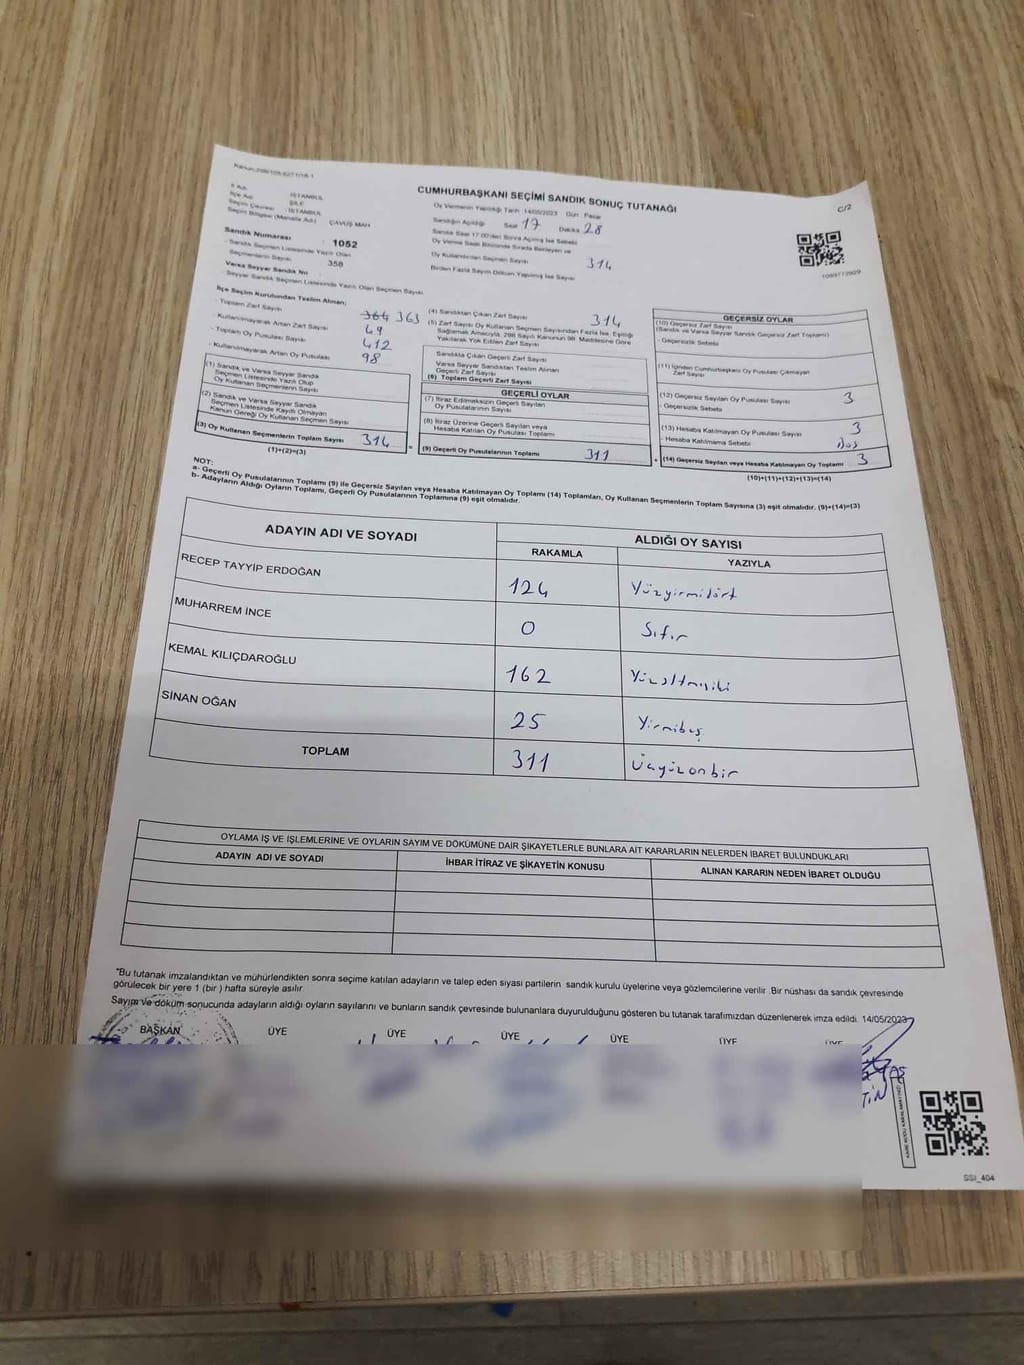 Kanun:298/105,6271/18-1
CUMHURBAŞKANI SEÇİMİ SANDIK SONUÇ TUTANAĞI
C/2
İl Adı : İSTANBUL
İlçe Adı : ŞİLE
Seçim Çevresi : İSTANBUL
Seçim Bölgesi (Mahalle Adı) : ÇAVUŞ MAH
Oy Vermenin Yapıldığı Tarih :14/05/2023 Gün : Pazar
Sandığın Açıldığı Saat 17 Dakika 28
Sandık Saat 17:00'den Sonra Açılmış İse Sebebi
Oy Verme Saati Bitiminde Sırada Bekleyen ve
Oy Kullandırılan Seçmen Sayısı 314
Birden Fazla Sayım Döküm Yapılmış İse Sayısı
Sandık Numarası : 1052
- Sandık Seçmen Listesinde Yazılı Olan
Seçmenlerin Sayısı : 358
Varsa Seyyar Sandık No :
- Seyyar Sandık Seçmen Listesinde Yazılı Olan Seçmen Sayısı
İlçe Seçim Kurulundan Teslim Alınan;
- Toplam Zarf Sayısı 364 363
- Kullanılmayarak Artan Zarf Sayısı 49
- Toplam Oy Pusulası Sayısı 412
- Kullanılmayarak Artan Oy Pusulası 98
(1) Sandık ve Varsa Seyyar Sandık
Seçmen Listesinde Yazılı Olup
Oy Kullanan Seçmenlerin Sayısı
(2) Sandık ve Varsa Seyyar Sandık
Seçmen Listesinde Kayıtlı Olmayan
Kanun Gereği Oy Kullanan Seçmen Sayısı
(3) Oy Kullanan Seçmenlerin Toplam Sayısı 314
(1)+(2)=(3)
(4) Sandıktan Çıkan Zarf Sayısı 314
(5) Zarf Sayısı Oy Kullanan Seçmen Sayısından Fazla İse, Eşitliği
Sağlamak Amacıyla, 298 Sayılı Kanunun 98. Maddesine Göre
Yakılarak Yok Edilen Zarf Sayısı
Sandıkta Çıkan Geçerli Zarf Sayısı
Varsa Seyyar Sandıktan Teslim Alınan
Geçerli Zarf Sayısı
(6) Toplam Geçerli Zarf Sayısı
GEÇERLİ OYLAR
(7) İtiraz Edilmeksizin Geçerli Sayılan
Oy Pusulalarının Sayısı
(8) İtiraz Üzerine Geçerli Sayılan veya
Hesaba Katılan Oy Pusulası Toplamı
= (9) Geçerli Oy Pusulalarının Toplamı 311
GEÇERSİZ OYLAR
(10) Geçersiz Zarf Sayısı
(Sandık ve Varsa Seyyar Sandık Geçersiz Zarf Toplamı)
- Geçersizlik Sebebi
(11) İçinden Cumhurbaşkanı Oy Pusulası Çıkmayan
Zarf Sayısı
(12) Geçersiz Sayılan Oy Pusulası Sayısı 3
- Geçersizlik Sebebi
(13) Hesaba Katılmayan Oy Pusulası Sayısı 3
- Hesaba Katılmama Sebebi
+ (14) Geçersiz Sayılan veya Hesaba Katılmayan Oy Toplamı 3
(10)+(11)+(12)+(13)=(14)
NOT:
a- Geçerli Oy Pusulalarının Toplamı (9) ile Geçersiz Sayılan veya Hesaba Katılmayan Oy Toplamı (14) Toplamları, Oy Kullanan Seçmenlerin Toplam Sayısına (3) eşit olmalıdır. (9)+(14)=(3)
b- Adayların Aldığı Oyların Toplamı, Geçerli Oy Pusulalarının Toplamına (9) eşit olmalıdır.
ADAYIN ADI VE SOYADI
ALDIĞI OY SAYISI
RAKAMLA YAZIYLA
RECEP TAYYİP ERDOĞAN 124 Yüzyirmidört
MUHARREM İNCE 0 Sıfır
KEMAL KILIÇDAROĞLU 162 Yüzaltmışiki
SİNAN OĞAN 25 Yirmibeş
TOPLAM 311 Üçyüzonbir
OYLAMA İŞ VE İŞLEMLERİNE VE OYLARIN SAYIM VE DÖKÜMÜNE DAİR ŞİKAYETLERLE BUNLARA AİT KARARLARIN NELERDEN İBARET BULUNDUKLARI
ADAYIN ADI VE SOYADI İHBAR İTİRAZ VE ŞİKAYETİN KONUSU ALINAN KARARIN NEDEN İBARET OLDUĞU
*Bu tutanak imzalandıktan ve mühürlendikten sonra seçime katılan adayların ve talep eden siyasi partilerin sandık kurulu üyelerine veya gözlemcilerine verilir .Bir nüshası da sandık çevresinde
görülecek bir yere 1 (bir ) hafta süreyle asılır.
Sayım ve döküm sonucunda adayların aldığı oyların sayılarını ve bunların sandık çevresinde bulunanlara duyurulduğunu gösteren bu tutanak tarafımızdan düzenlenerek imza edildi. 14/05/2023
BAŞKAN ÜYE ÜYE ÜYE ÜYE ÜYE ÜYE
SSI_404